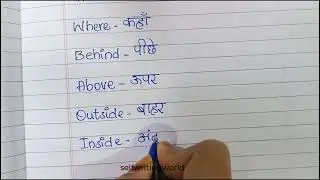 Where - कहाँ
Behind - पीछे
Above - ऊपर
Outside - बाहर
Inside - अंद